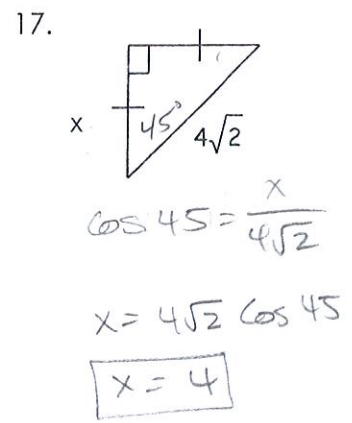 17.
x 45° 4√2
cos 45 = x/4√2
x = 4√2 cos 45
x = 4